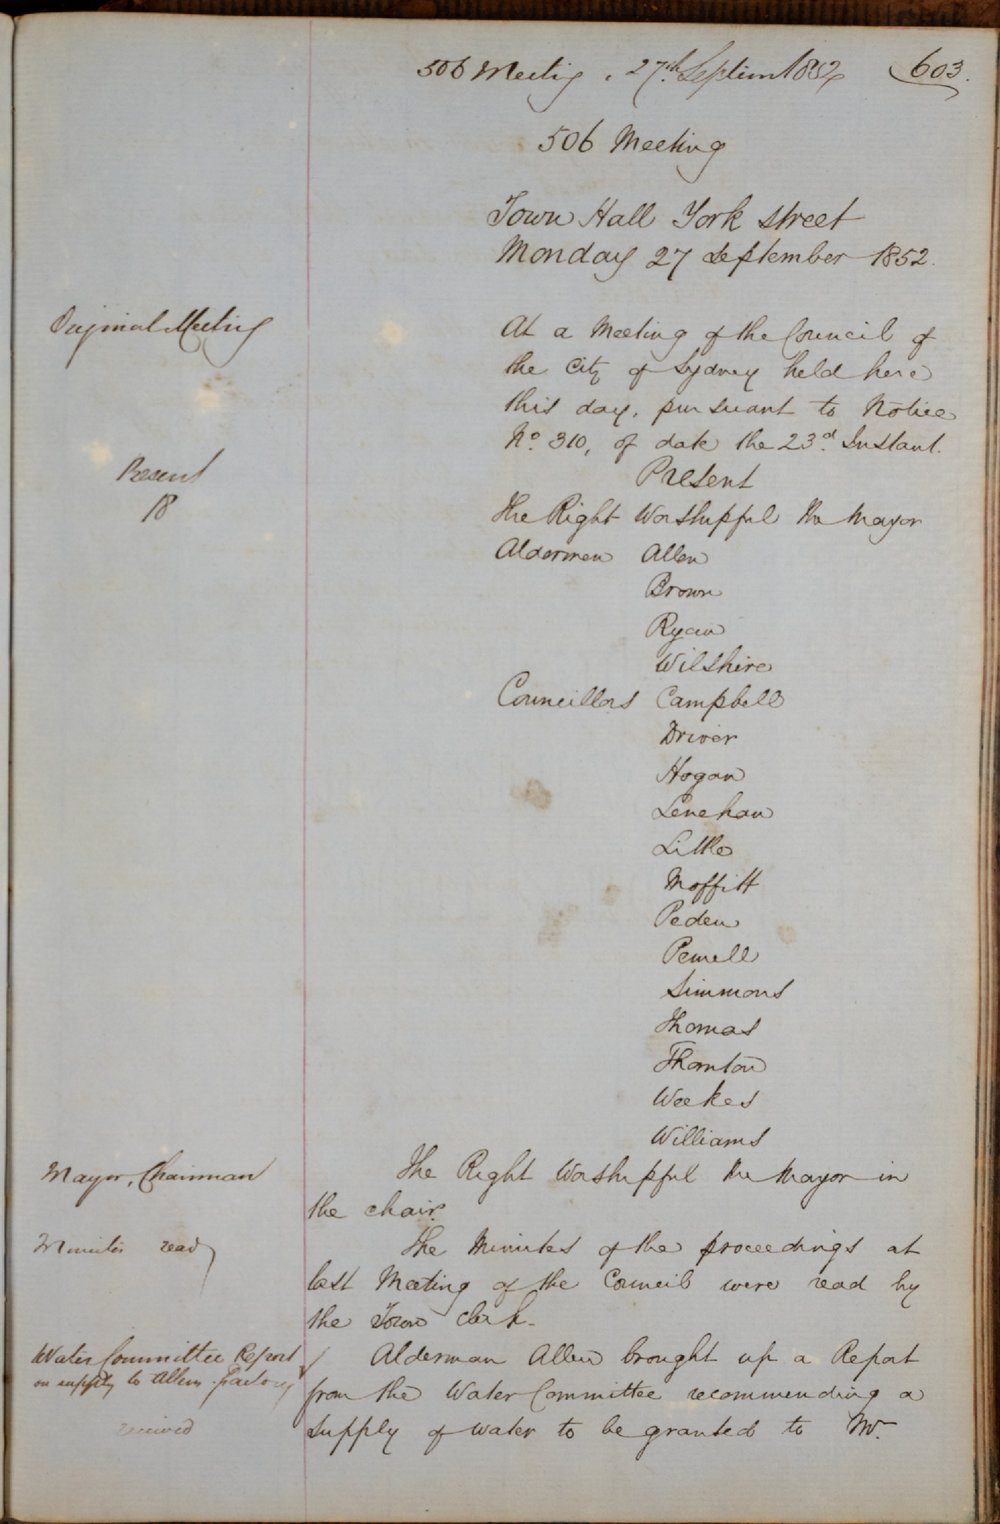 506 Meeting. 27th Septem 1852 603.
506 Meeting
Town Hall York Street
Monday 27 September 1852.
Original Meeting
At a Meeting of the Council of
the City of Sydney held here
this day, pursuant to Notice
No. 310, of date the 23d. Instant.
Present
18
Present
The Right Worshipful the Mayor
Aldermen Allen
Brown
Ryan
Wilshire
Councillors Campbell
Driver
Hogan
Lenehan
Little
Moffitt
Peden
Pemell
Simmons
Thomas
Thornton
Weekes
Williams
Mayor, Chairman
The Right Worshipful the Mayor in
the chair.
Minutes read
The Minutes of the proceedings at
last Meeting of the Council were read by
the Town Clerk.
Water Committee Report
on supply to Allens factory
received
Alderman Allen brought up a Report
from the Water Committee recommending a
supply of water to be granted to Mr.